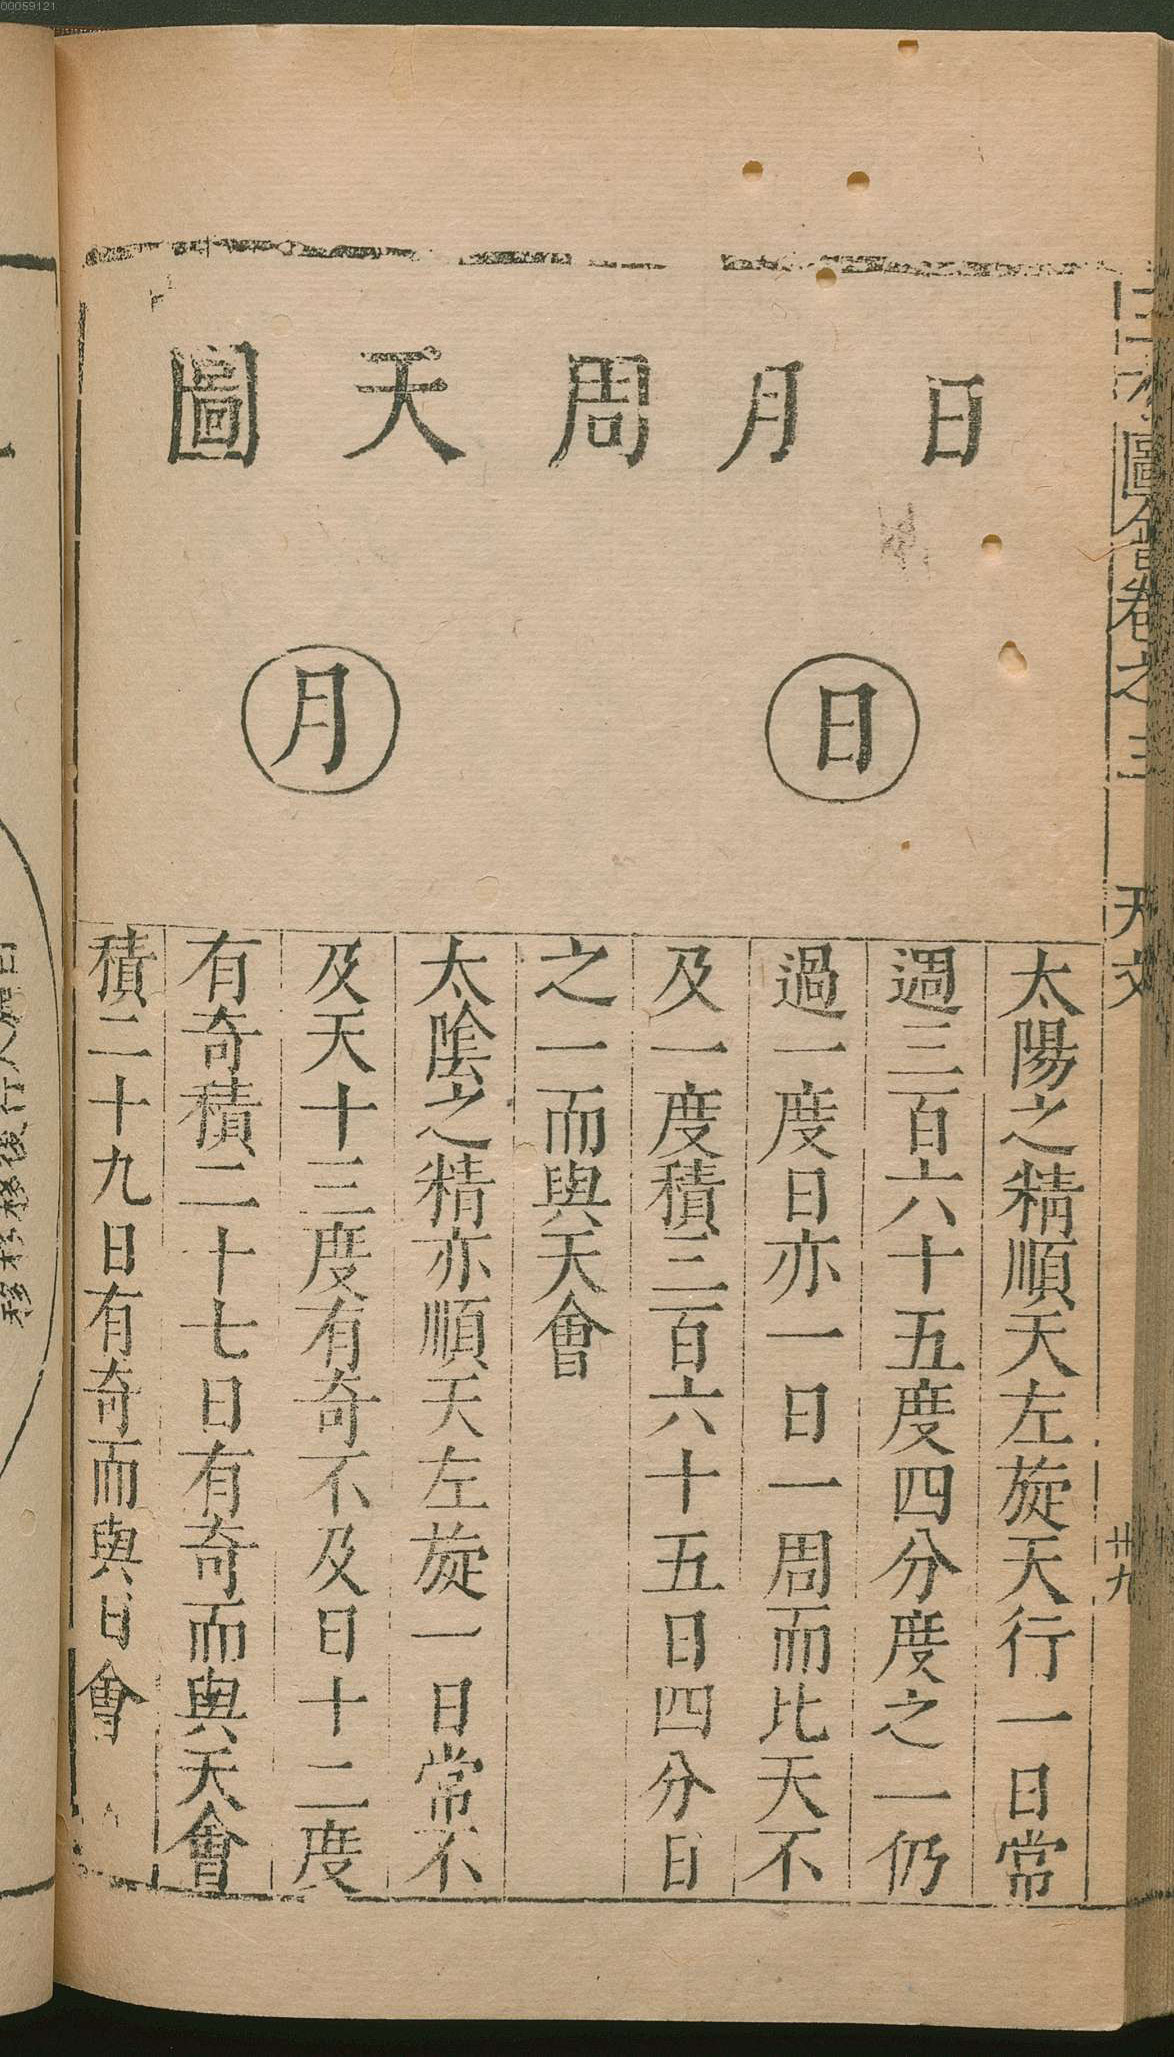 00059121
三才圖會卷之三 天文 卅九
日月周天圖
日
月
太陽之精順天左旋天行一日常
週三百六十五度四分度之一仍
過一度日亦一日一周而比天不
及一度積三百六十五日四分日
之一而與天會
太陰之精亦順天左旋一日常不
及天十三度有奇不及日十二度
有奇積二十七日有奇而與天會
積二十九日有奇而與日會